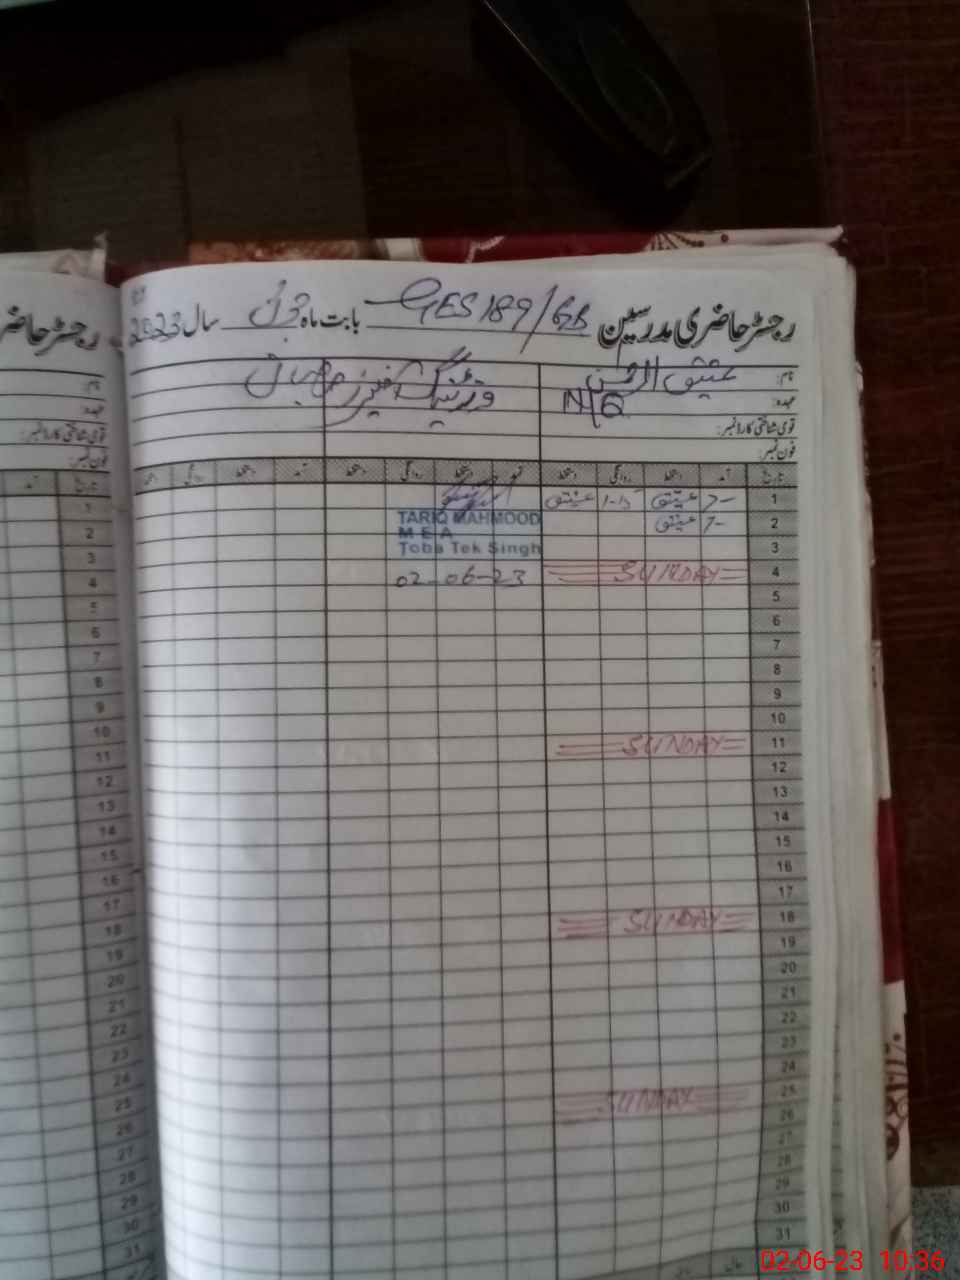 رجسٹر حاضری مدرسین GES 189/GB بابت ماہ جون سال 2023
نام: عتیق الرحمن
عہدہ: N/Q
قومی شناختی کارڈ نمبر:
فون نمبر:
تاریخ آمد دستخط روانگی دستخط آمد دستخط روانگی دستخط آمد دستخط روانگی دستخط
1 7- عتیق 1-15 عتیق
2 7- عتیق
TARIQ MAHMOOD
M E A
Toba Tek Singh
3
4 SUNDAY
02-06-23
5
6
7
8
9
10
11 SUNDAY
12
13
14
15
16
17
18 SUNDAY
19
20
21
22
23
24
25 SUNDAY
26
27
28
29
30
31
رجسٹر حاضر
نام:
عہدہ:
قومی شناختی کارڈ نمبر:
فون نمبر:
تاریخ آمد
1
2
3
4
5
6
7
8
9
10
11
12
13
14
15
16
17
18
19
20
21
22
23
24
25
26
27
28
29
30
31
02-06-23 10:36